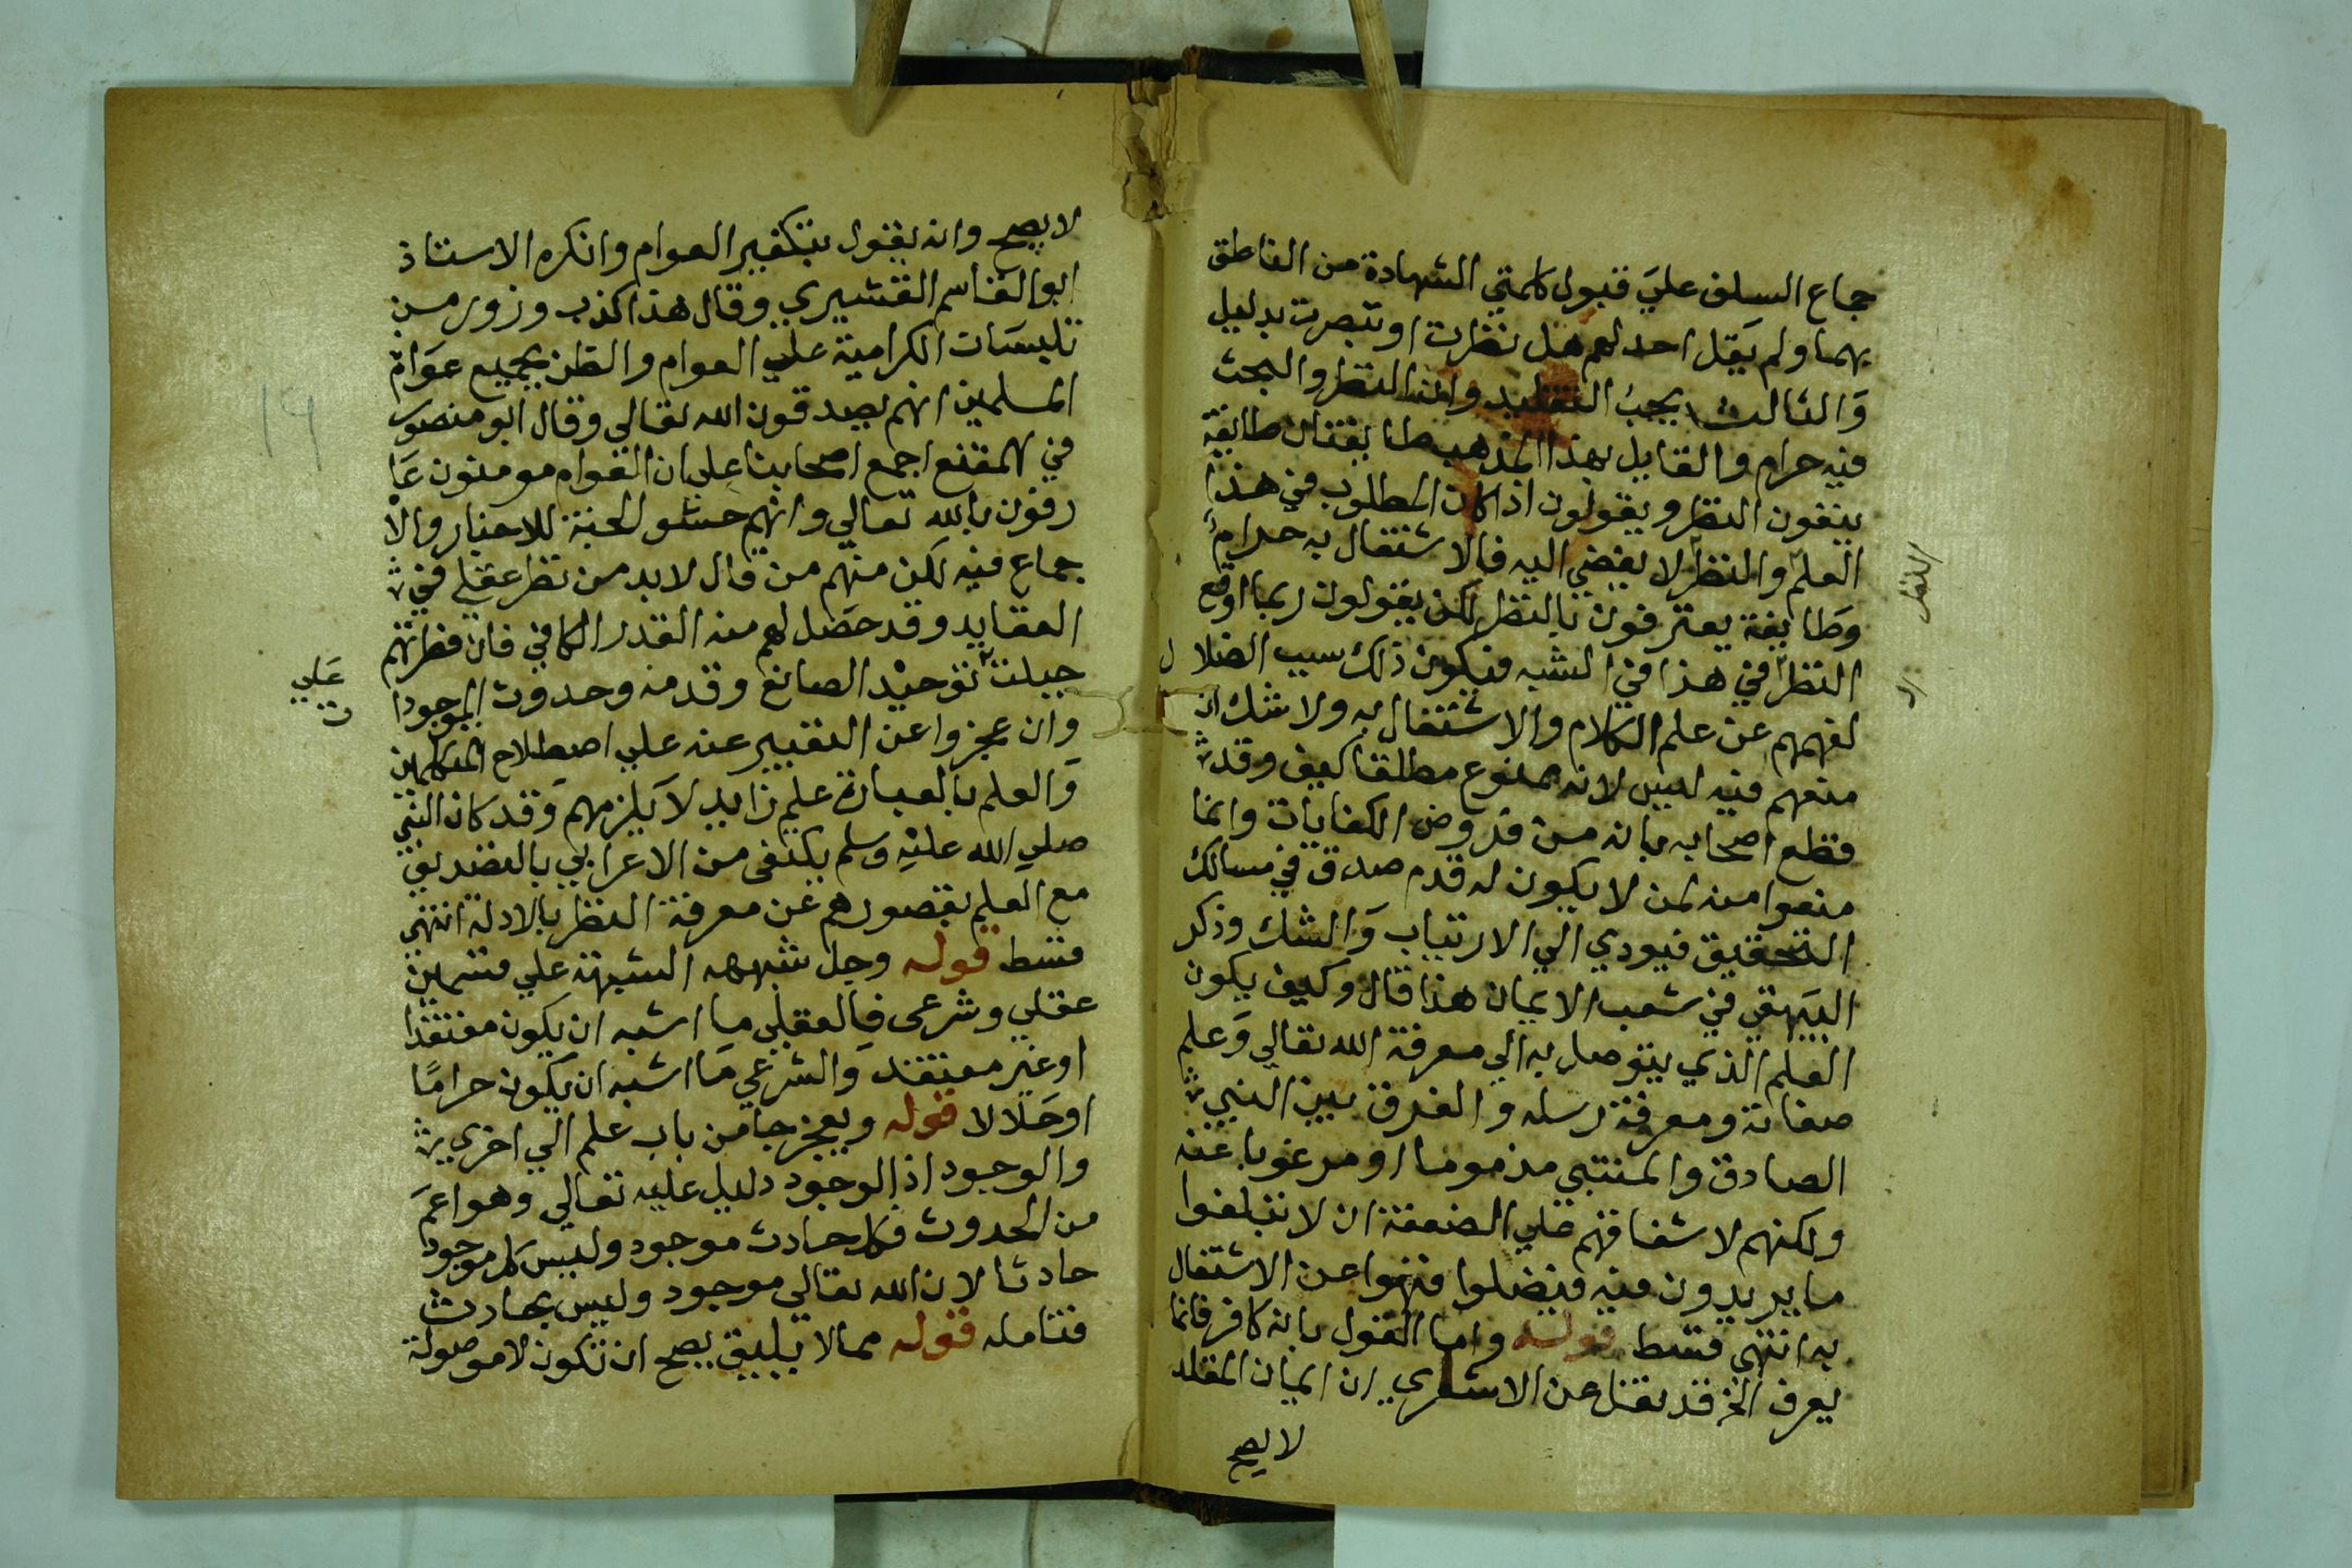 جماع السلف علي قبول كلمتي الشهادة من الناطق
بهما ولم يقل احد لهم هل نظرت او تبصرت بدليل
والثالث يجب التقليد وان النظر والبحث
فيه حرام والقايل بهذا المذهب طايفتان طايفة
ينفون النظر ويقولون اذا كان المطلوب في هذا
العلم والنظر لا يفضي اليه فالاشتغال به حرام
وطايفة يعترفون بالنظر لكن يقولون ربما اوقع
النظر في هذا في الشبه فيكون ذلك سبب الضلال
لفهمهم عن علم الكلام والاشتغال به ولا شك ان
منعهم فيه ليس لانه ممنوع مطلقا كيف وقد
قطع اصحابه بانه من فروض الكفايات وانما
منعوا منه لمن لا يكون له قدم صدق في مسالك
التحقيق فيودي الي الارتياب والشك وذكر
البيهقي في شعب الايمان هذا قال وكيف يكون
العلم الذي يتوصل به الي معرفة الله تعالي وعلم
صفاته ومعرفة رسله والفرق بين النبي
الصادق والمتنبي مذموما او مرغوبا عنه
ولكنهم لاشفاقهم علي الضعفة ان لا يبلغوا
ما يريدون منه فيضلوا فنهوا عن الاشتغال
به انتهي قسط قوله واما القول بانه كافر فانما
يعرف الخ قد نقل عن الاشعري ان ايمان المقلد
لا يصح
لا يصح وانه يقول بتكفير العوام وانكره الاستاذ
ابو القاسم القشيري وقال هذا كذب وزور من
تلبيسات الكرامية علي العوام والظن بجميع عوام
المسلمين انهم يصدقون الله تعالي وقال ابو منصور
في المقنع اجمع اصحابنا علي ان العوام مومنون عا
رفون بالله تعالي وانهم حشو الجنة للاخبار والا
جماع فيه لكن منهم من قال لا بد من نظر عقلي في
العقايد وقد حصل لهم منه القدر الكافي فان فطرتهم
جبلت توحيد الصانع وقدمه وحدوث الموجودا
علي
ت
وان عجزوا عن التعبير عنه علي اصطلاح المتكلمين
والعلم بالعبارة علم زايد لا يلزمهم وقد كان النبي
صلي الله عليه وسلم يكتفي من الاعرابي بالتصديق
مع العلم بقصورهم عن معرفة النظر بالادلة انتهي
قسط قوله وحل شبهه الشبهة علي قسمين
عقلي وشرعي فالعقلي ما اشبه ان يكون معتقدا
او غير معتقد والشرعي ما اشبه ان يكون حراما
او حلالا قوله ويعجز جامن باب علم الي اخزي
والوجود اذ الوجود دليل عليه تعالي وهو اعم
من الحدوث فكل حادث موجود وليس كل موجود
حادثا لان الله تعالي موجود وليس بحادث
فتامله قوله مما لا يليق يصح ان تكون لا موصولة